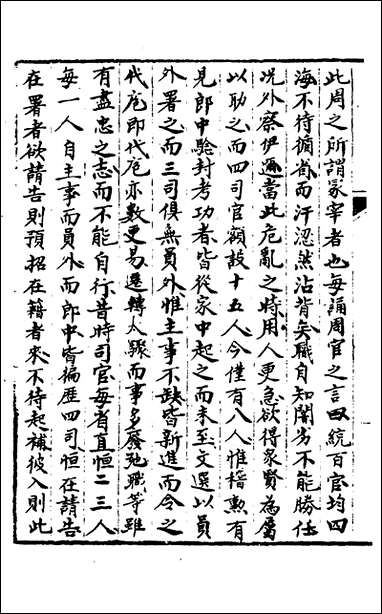 此周之所謂冢宰者也每誦周官之言曰統百官均四
海不待循省而汗忽然沾背矣職自知闇劣不能勝任
况外察伊邇當此危亂之時用人更急欲得衆賢為屬
以助之而四司官額設十五人今僅有八人惟稽勲有
見郎中驗封考功者皆從家中起之而未至文選以員
外署之而三司俱無員外惟主事不缺皆新進而令之
代庖即代庖亦數更易遷轉太驟而事多廢弛職等雖
有盡忠之志而不能自行昔時司官每省直恒二三人
每一人自主事而員外而郎中皆徧歷四司恒在請告
在署者欲請告則預招在籍者來不待起補彼入則此